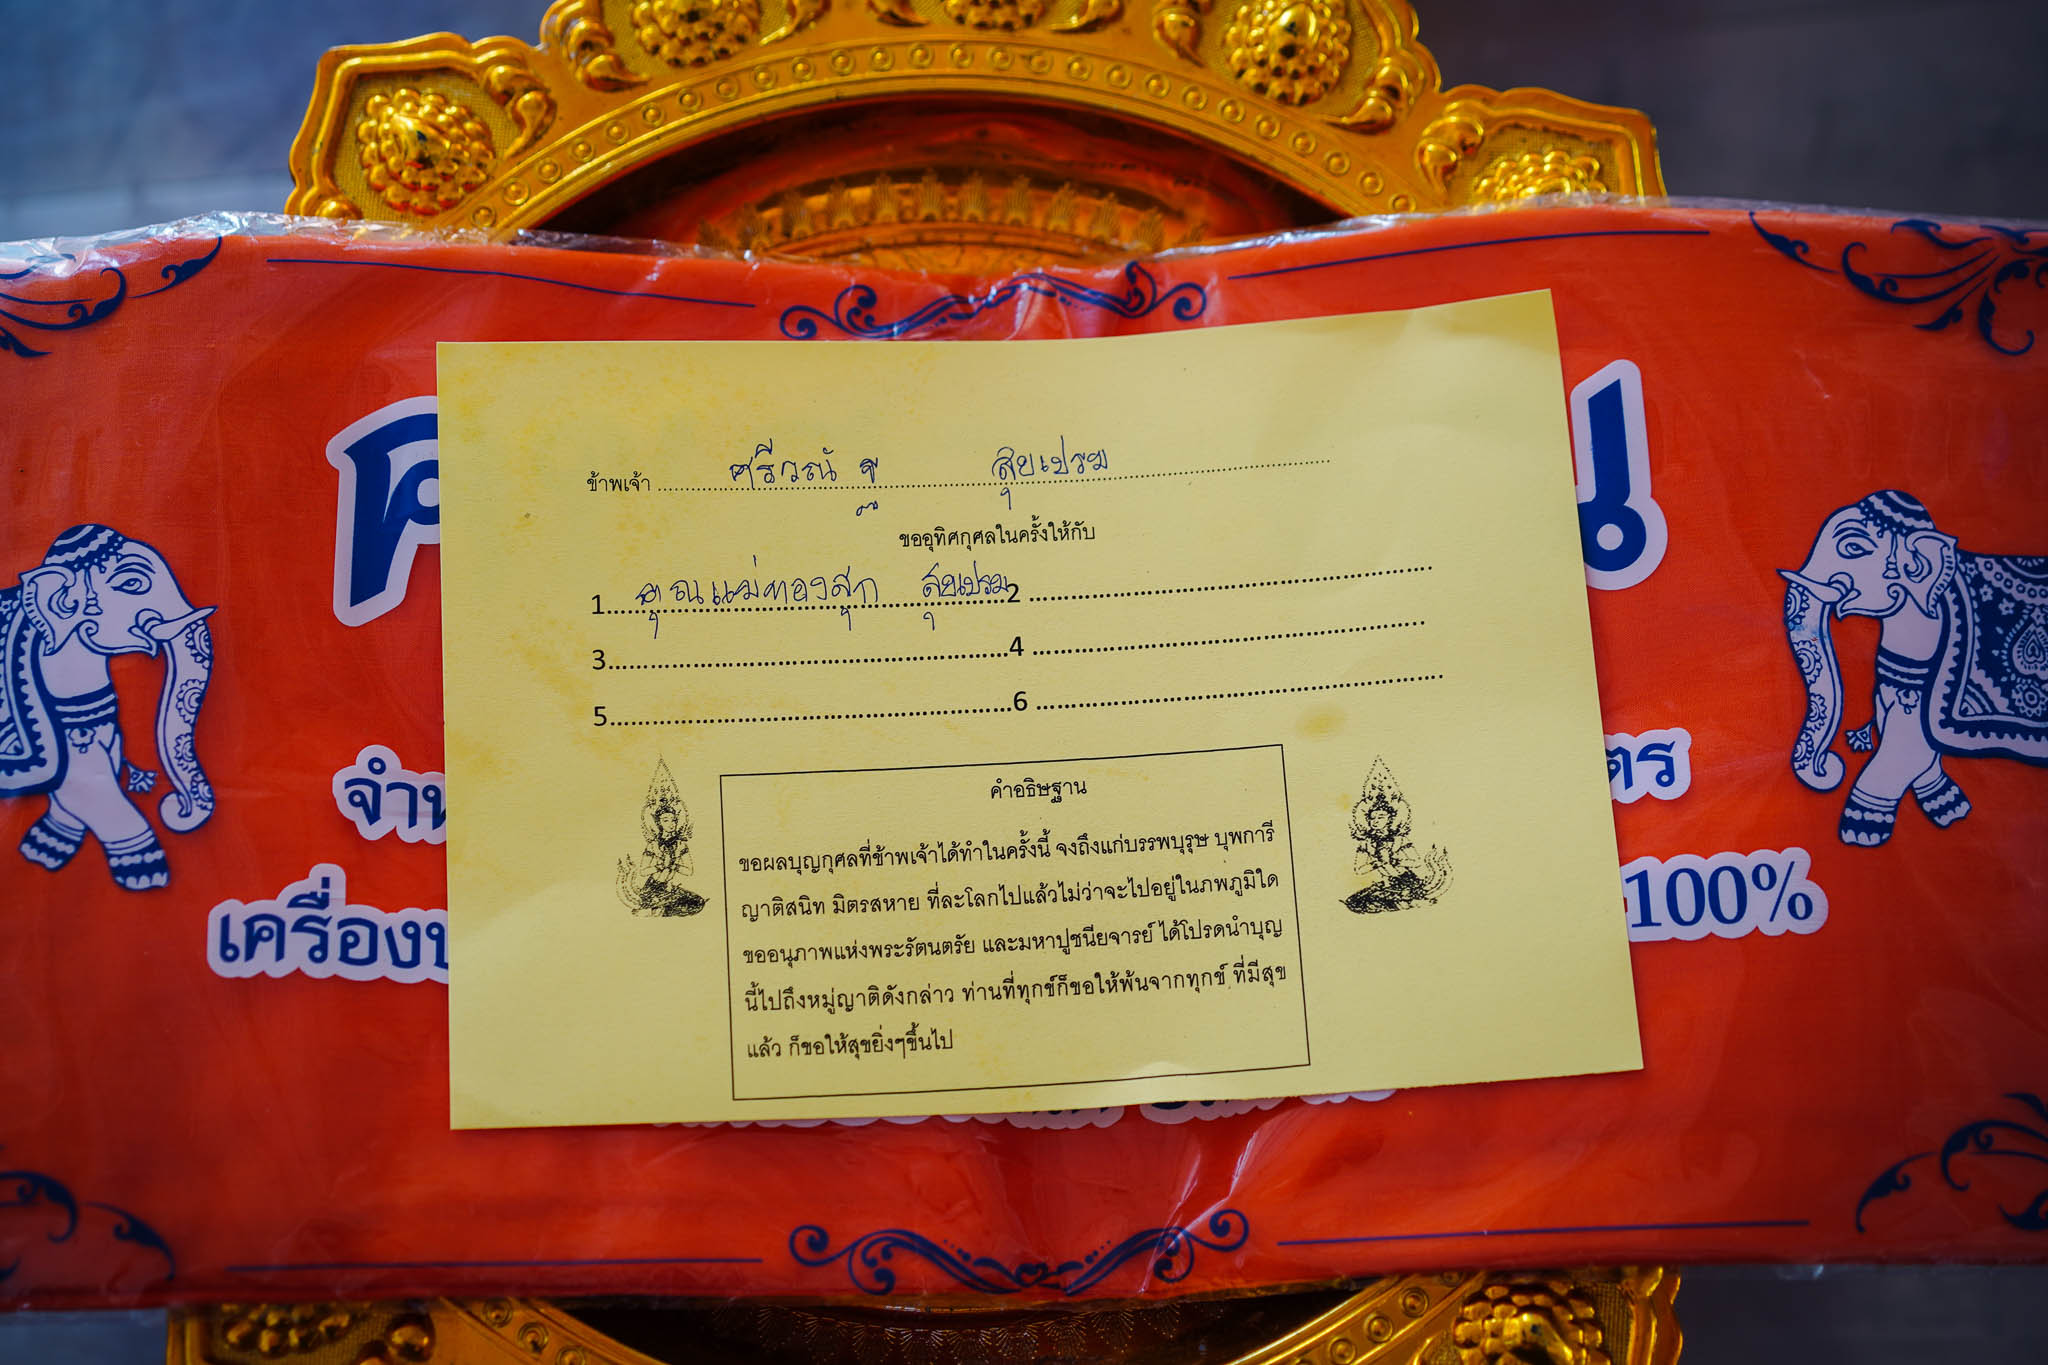 ข้าพเจ้า ศรีวรณั ฐ สุขเปรม
ขออุทิศกุศลในครั้งให้กับ
1 คุณแม่ทองสุก สุขเปรม 2
3 4
5 6
คำอธิษฐาน
ขอผลบุญกุศลที่ข้าพเจ้าได้ทำในครั้งนี้ จงถึงแก่บรรพบุรุษ บุพการี
ญาติสนิท มิตรสหาย ที่ละโลกไปแล้วไม่ว่าจะไปอยู่ในภพภูมิใด
ขออนุภาพแห่งพระรัตนตรัย และมหาปูชนียจารย์ ได้โปรดนำบุญ
นี้ไปถึงหมู่ญาติดังกล่าว ท่านที่ทุกข์ก็ขอให้พ้นจากทุกข์ ที่มีสุข
แล้ว ก็ขอให้สุขยิ่งๆขึ้นไป
100%